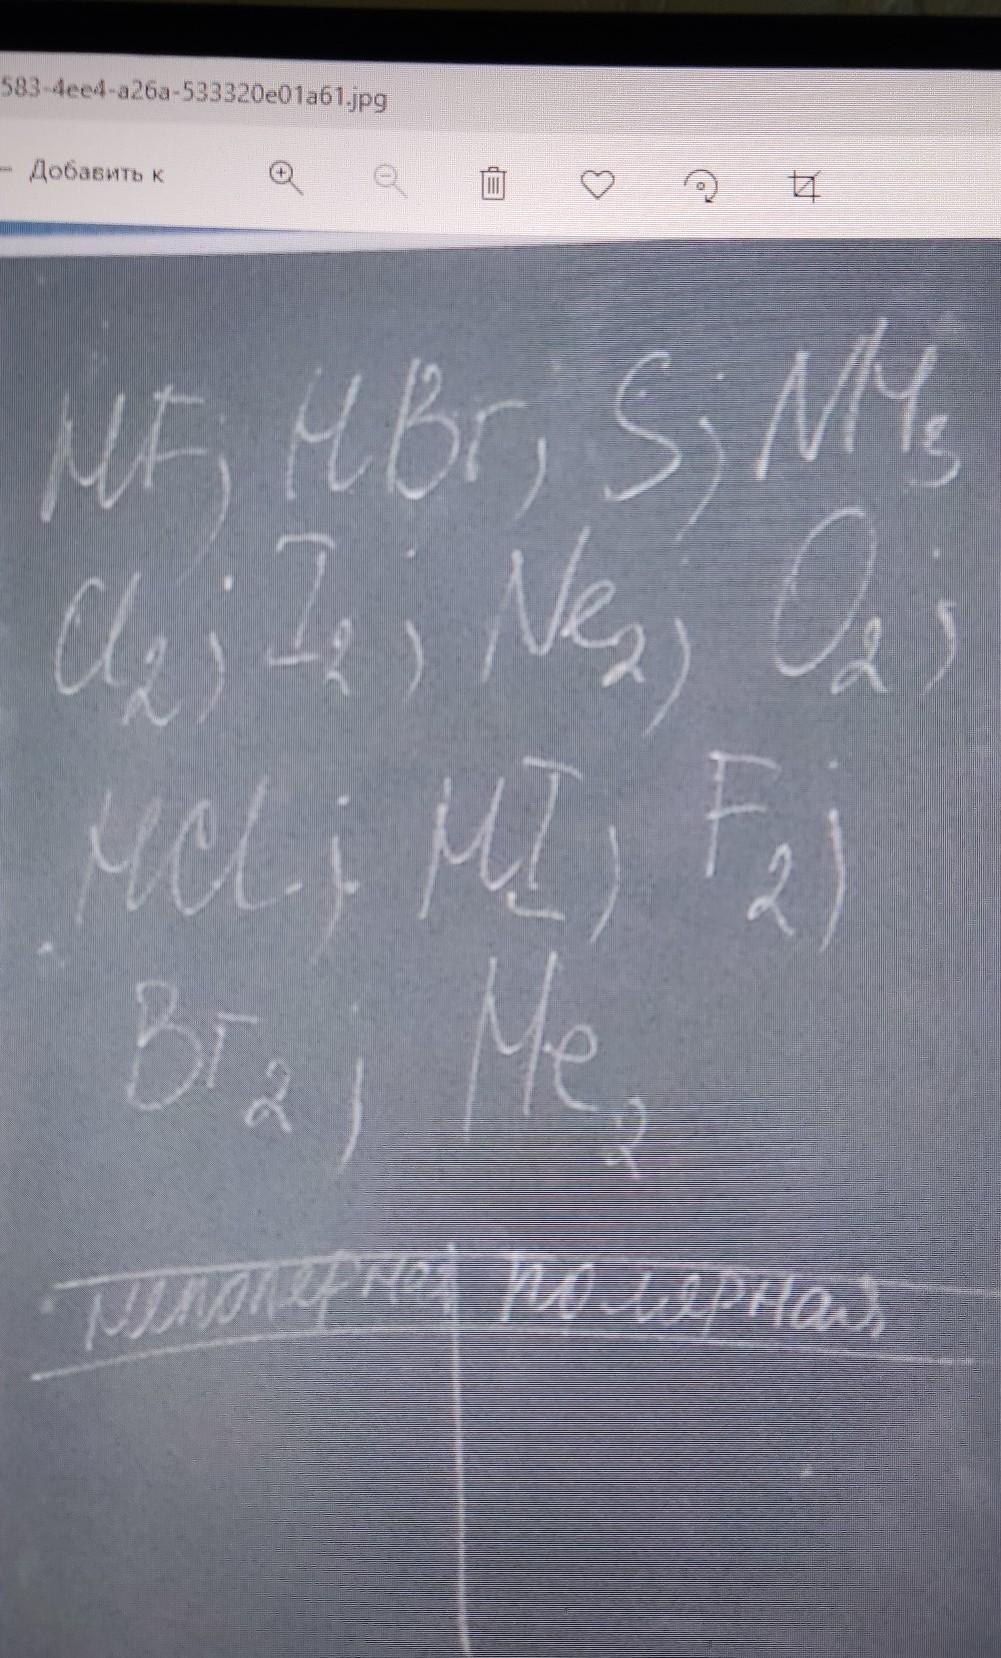 583-4ee4-a26a-533320e01a61.jpg
Добавить к
HF; HBr; S; NH3
Cl2; I2; Ne2; O2;
HCl; HI; F2;
Br2; He2
неполярная полярная